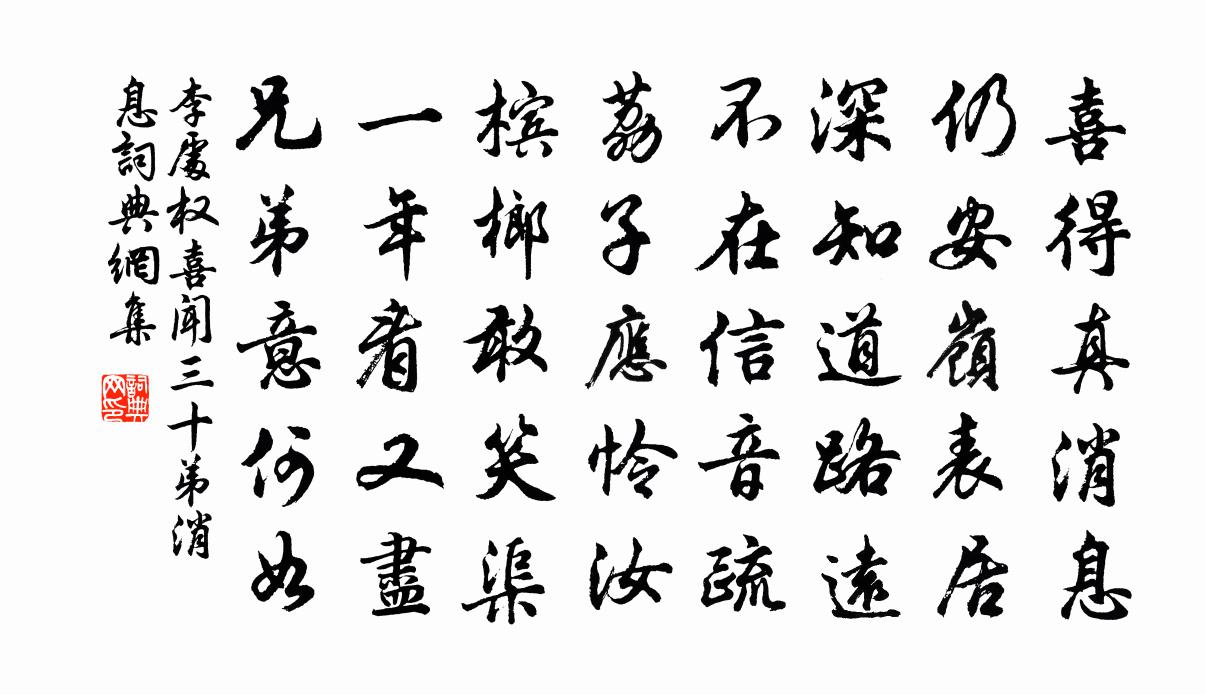 喜得真消息
仍安嶺表居
深知道路遠
不在信音疏
荔子應怜汝
槟榔敢笑渠
一年看又盡
兄弟意何如
李處权喜聞三十弟消
息詞典網集
詞典
网印